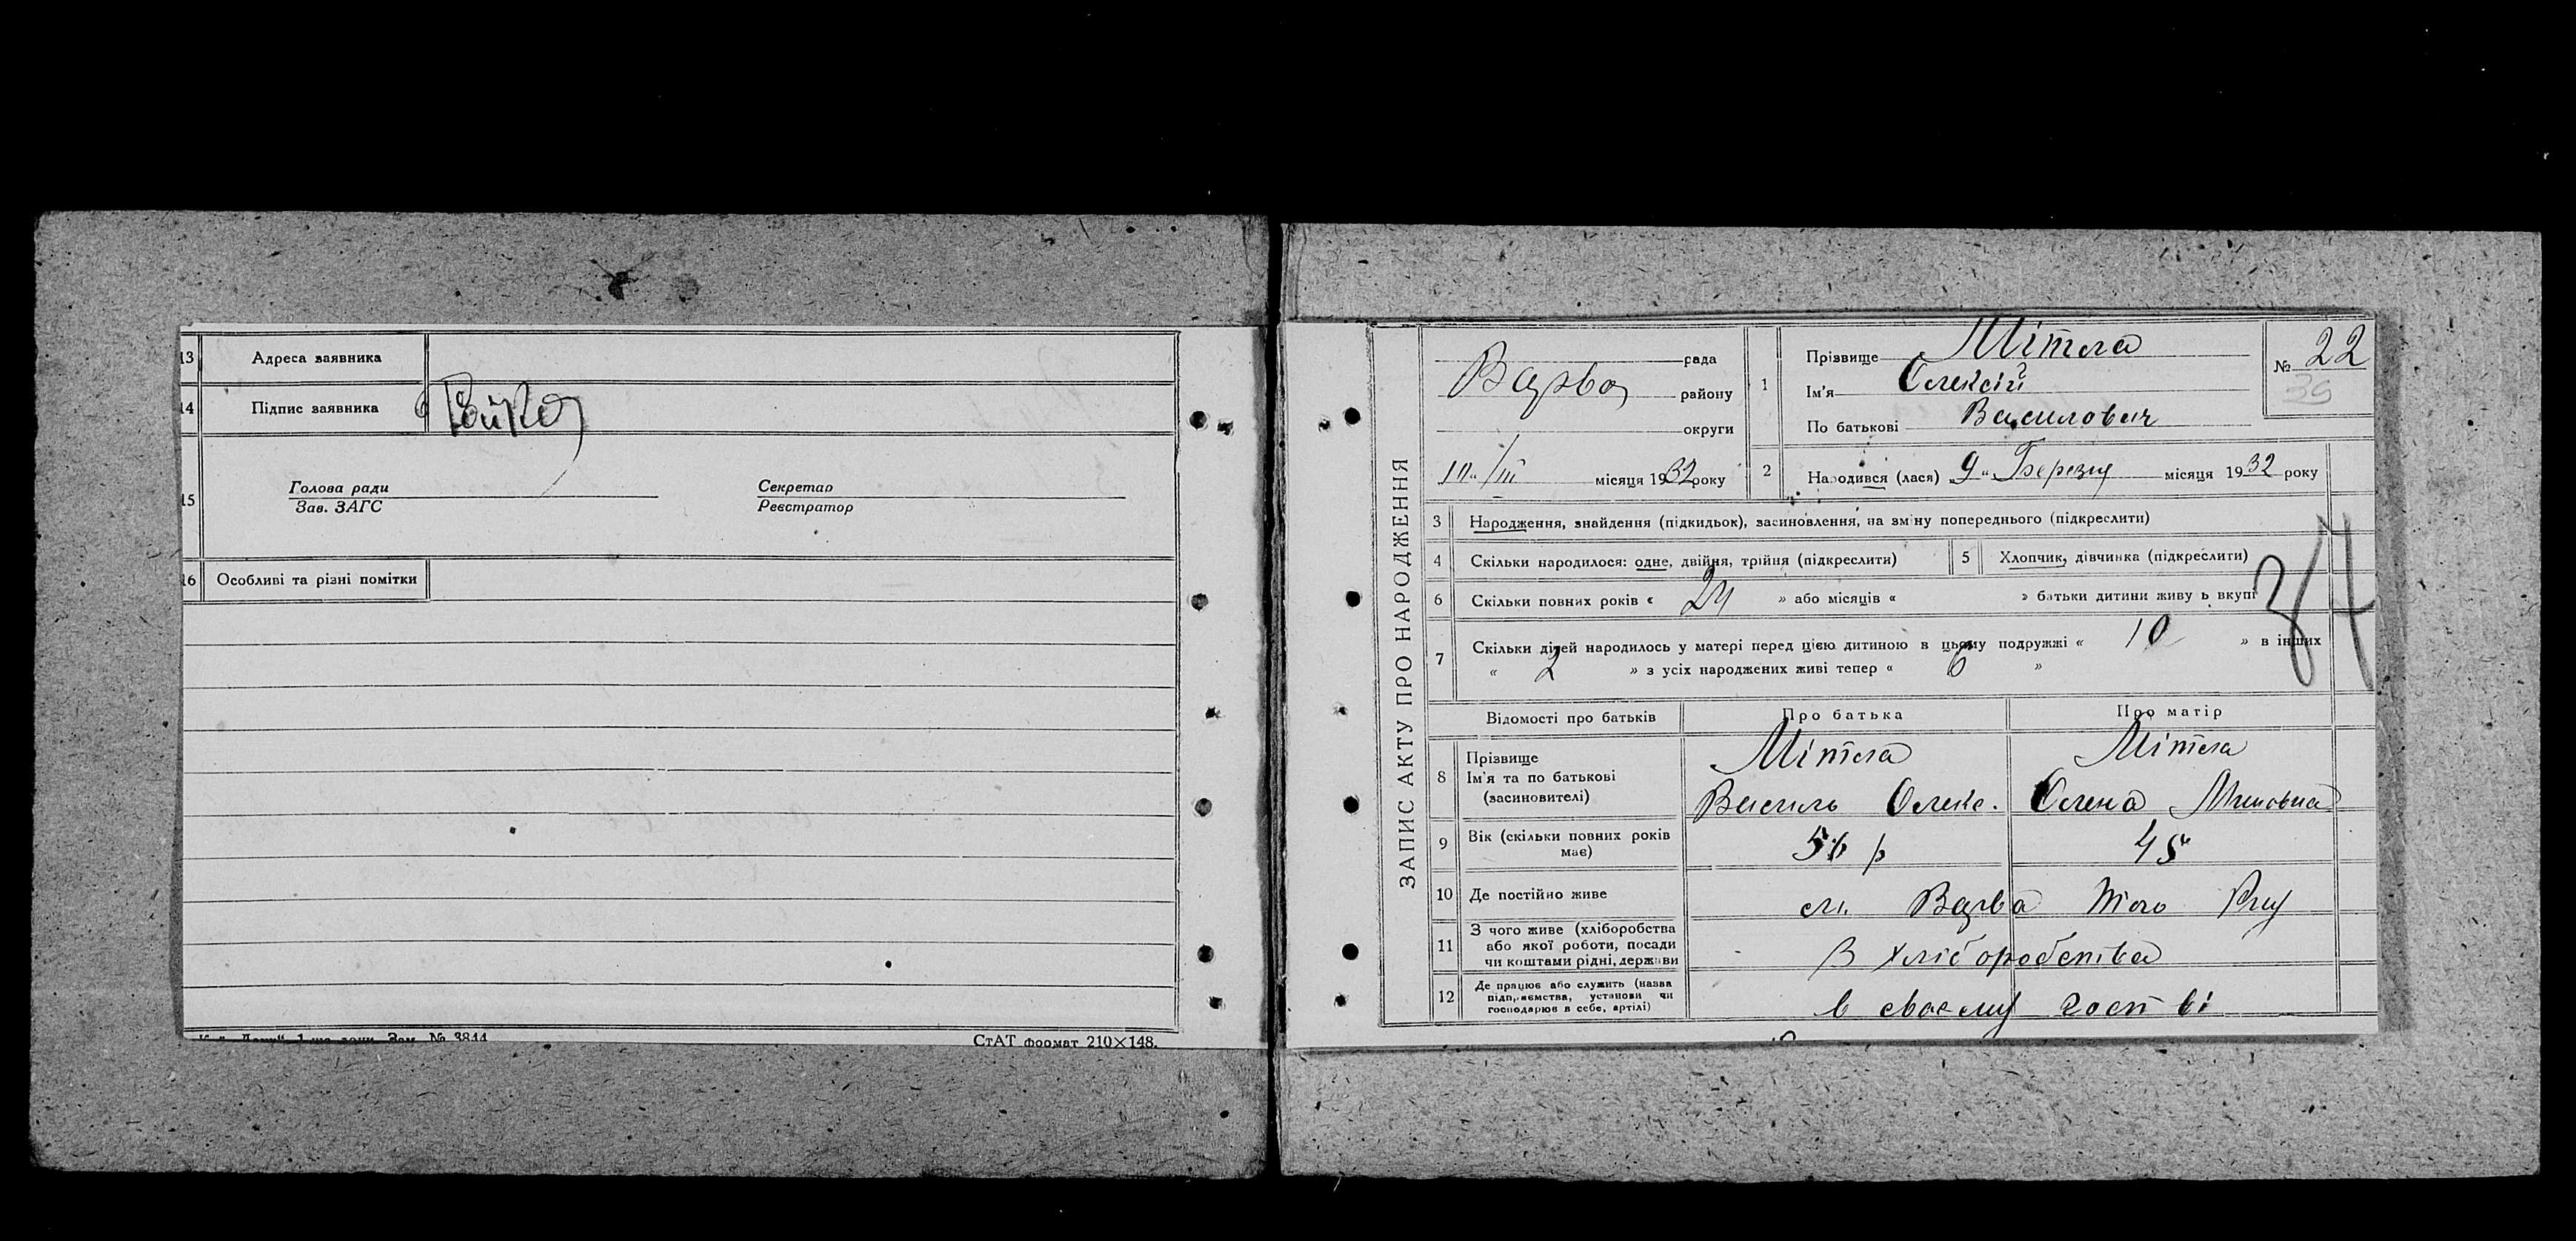 13 Адреса заявника
14 Підпис заявника
15 Голова ради
Зав. ЗАГС
Секретар
Реєстратор
16 Особливі та різні помітки
Зам. № 3844
СтАТ формат 210×148.
ЗАПИС АКТУ ПРО НАРОДЖЕННЯ
рада
Варва району
округи
/III місяця 1932 року
1 Прізвище Мітла
Ім'я Олексій
По батькові Василович
№ 22
39
2 Народився (лася) „9“ Березня місяця 1932 року
3 Народження, знайдення (підкидьок), засиновлення, на зміну попереднього (підкреслити)
4 Скільки народилося: одне, двійня, трійня (підкреслити)
5 Хлопчик, дівчинка (підкреслити)
34
6 Скільки повних років « 24 » або місяців « » батьки дитини живу ь вкупі
7 Скільки дітей народилось у матері перед цією дитиною в цьому подружжі « 10 » в інших
« 2 » з усіх народжених живі тепер « 6 »
Відомості про батьків Про батька Про матір
8 Прізвище
Ім'я та по батькові
(засиновителі)
Мітла
Василь Олекс.
Мітла
Олена
9 Вік (скільки повних років
має)
56 р
45
10 Де постійно живе
м. Варва того
11 З чого живе (хліборобства
або якої роботи, посади
чи коштами рідні, держави
З хліборобства
12 Де працює або служить (назва
підприємства, установи чи
господарює в себе, артілі)
в своєму госп ві